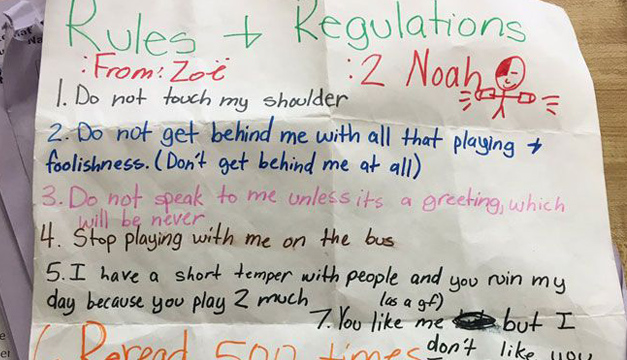 Rules + Regulations
:From: Zoë :2 Noah
1. Do not touch my shoulder
2. Do not get behind me with all that playing +
foolishness. (Don't get behind me at all)
3. Do not speak to me unless its a greeting, which
will be never
4. Stop playing with me on the bus
5. I have a short temper with people and you ruin my
day because you play 2 much
(as a gf)
7. You like me but I
don't like you
6. Reread 500 times